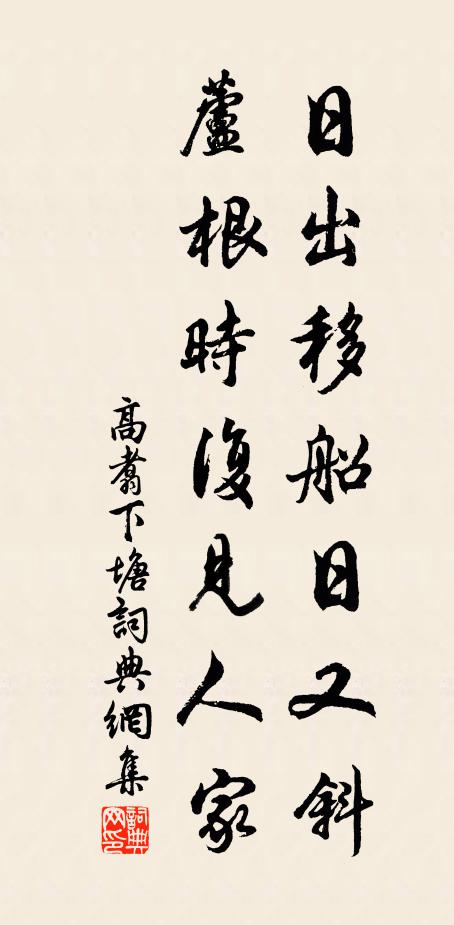 日出移船日又斜
蘆根時復見人家
高翥下塘詞典網集
詞典網印